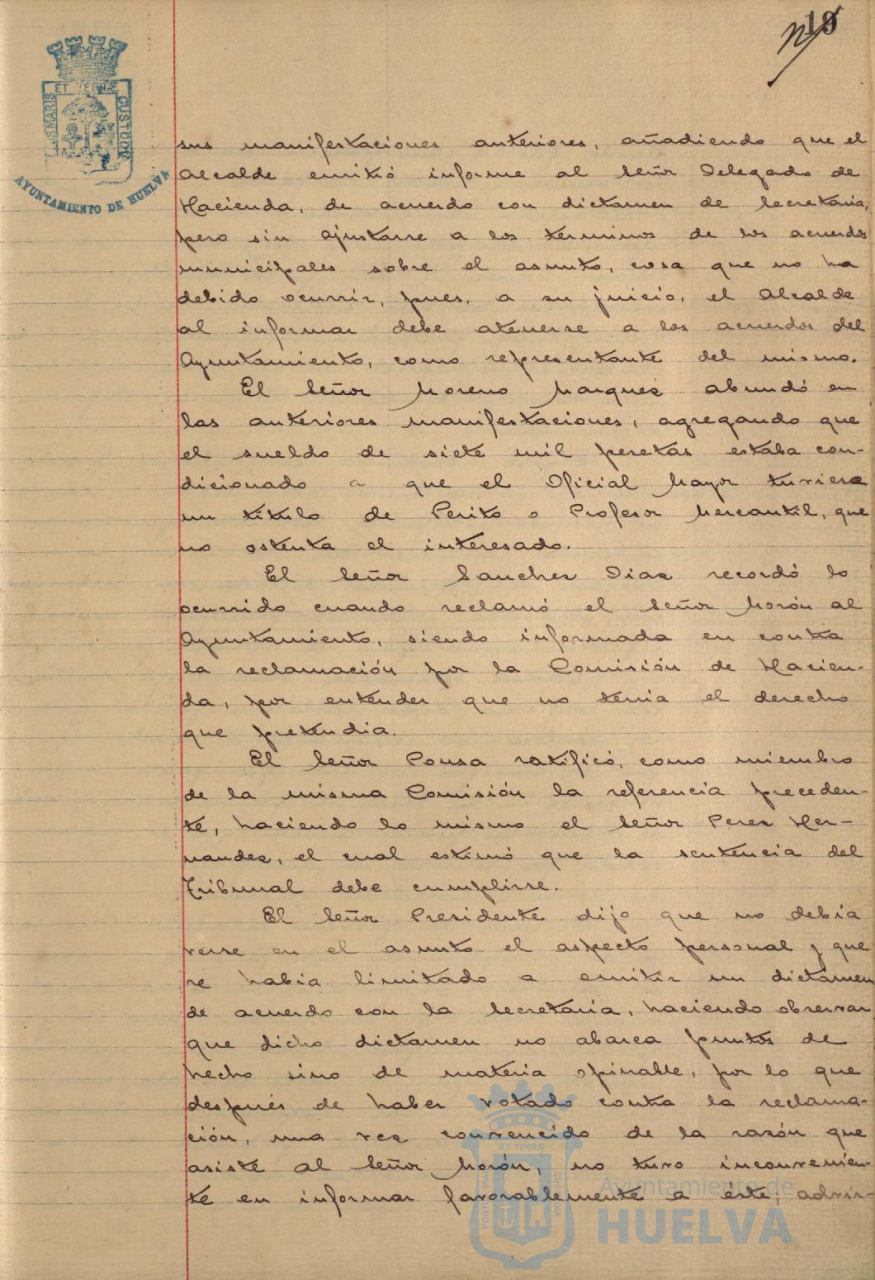 19
sus manifestaciones anteriores, añadiendo que el
Alcalde emitió informe al Señor Delegado de
Hacienda, de acuerdo con dictamen de Secretaría,
pero sin ajustarse a los terminos de los acuerdos
municipales sobre el asunto, cosa que no ha
debido ocurrir, pues, a su juicio, el Alcalde
al informar debe atenerse a los acuerdos del
Ayuntamiento, como representante del mismo.
El Señor Moreno Marquez abundó en
las anteriores manifestaciones, agregando que
el sueldo de siete mil pesetas estaba con-
dicionado a que el Oficial Mayor tuviese
un título de Perito o Profesor Mercantil, que
no ostenta el interesado.
El Señor Sanchez Diaz recordó lo
ocurrido cuando reclamó el Señor Morón al
Ayuntamiento, siendo informada en contra
la reclamación por la Comisión de Hacien-
da, por entender que no tenia el derecho
que pretendia.
El Señor Pousa ratificó, como miembro
de la misma Comisión la referencia preceden-
te, haciendo lo mismo el Señor Perez Her-
nandez, el cual estimó que la sentencia del
Tribunal debe cumplirse.
El Señor Presidente dijo que no debía
verse en el asunto el aspecto personal y que
se había limitado a emitir un dictámen
de acuerdo con la Secretaría, haciendo observar
que dicho dictamen no abarca puntos de
hecho sino de materia opinable, por lo que
después de haber votado contra la reclama-
ción, una vez convencido de la razón que
asiste al Señor Morón, no tuvo inconvenien-
te en informar favorablemente a éste; advir-
AYUNTAMIENTO DE HUELVA
Ayuntamiento de
HUELVA